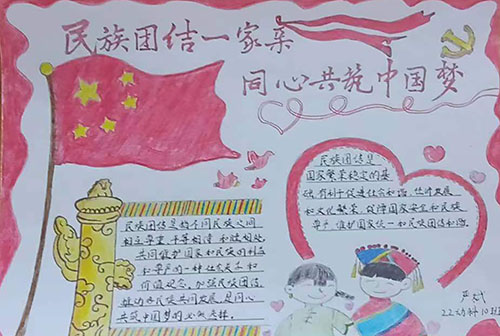 民族团结一家亲
同心共筑中国梦
民族团结是
国家繁荣稳定的基
础,有利于促进社会和谐,经济发展
和文化繁荣,保障国家安全和民族
尊严,维护国家统一和民族团结和谐。
民族团结是指不同民族之间
相互尊重,平等相待,和睦相处,
共同维护国家和民族的利益
和尊严的一种社会关系和
价值观念,加强民族团结,
各民族共同发展,是同心
共筑中国梦的必然选择。
22幼料10班